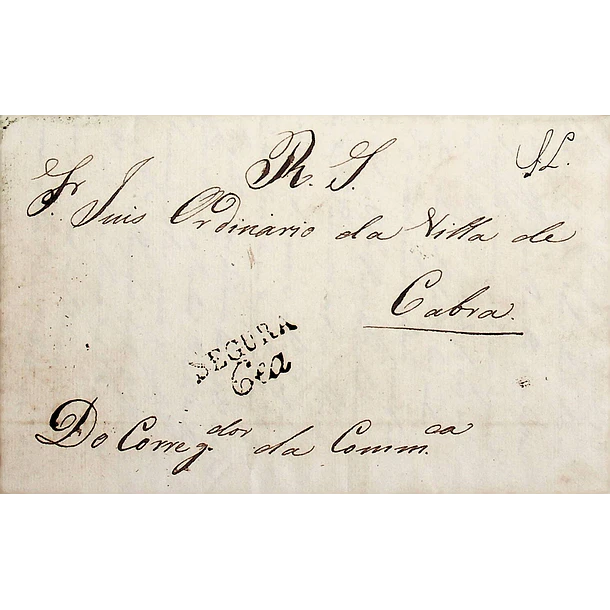 R. S.
Sr. Juis Ordinario da Villa de
Cabra.
SEGURA
Cea
Do Correg.dor da Comm.ca